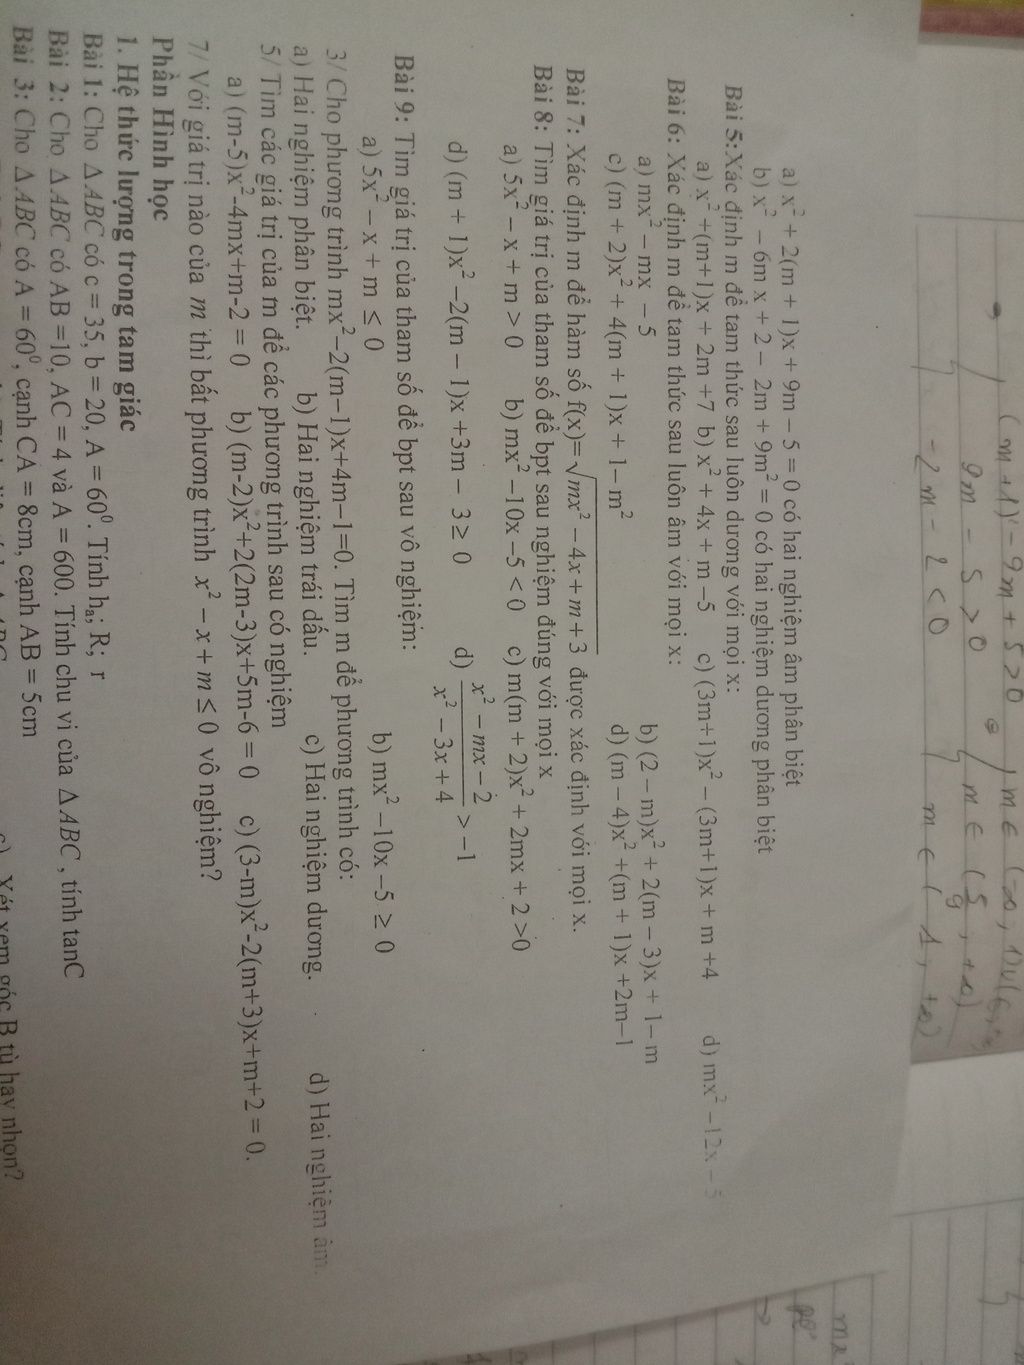 (m+1)² - 9m + 5 > 0
9m - 5 > 0
-2m - 2 < 0
m ∈ (-∞, 1) ∪ (6, +∞)
m ∈ (5/9, +∞)
m ∈ (-1, +∞)
a) x² + 2(m + 1)x + 9m – 5 = 0 có hai nghiệm âm phân biệt
b) x² – 6m x + 2 – 2m + 9m² = 0 có hai nghiệm dương phân biệt
Bài 5: Xác định m để tam thức sau luôn dương với mọi x:
a) x² +(m+1)x + 2m +7 b) x² + 4x + m –5 c) (3m+1)x² – (3m+1)x + m +4 d) mx² –12x – 5
Bài 6: Xác định m để tam thức sau luôn âm với mọi x:
a) mx² – mx – 5 b) (2 – m)x² + 2(m – 3)x + 1– m
c) (m + 2)x² + 4(m + 1)x + 1– m² d) (m – 4)x² +(m + 1)x +2m–1
Bài 7: Xác định m để hàm số f(x)= √(mx² – 4x + m + 3) được xác định với mọi x.
Bài 8: Tìm giá trị của tham số để bpt sau nghiệm đúng với mọi x
a) 5x² – x + m > 0 b) mx² –10x –5 < 0 c) m(m + 2)x² + 2mx + 2 >0
d) (m + 1)x² –2(m – 1)x +3m – 3 ≥ 0 d) (x² – mx – 2)/(x² – 3x + 4) > –1
Bài 9: Tìm giá trị của tham số để bpt sau vô nghiệm:
a) 5x² – x + m ≤ 0 b) mx² –10x –5 ≥ 0
3/ Cho phương trình mx²–2(m–1)x+4m–1=0. Tìm m để phương trình có:
a) Hai nghiệm phân biệt. b) Hai nghiệm trái dấu. c) Hai nghiệm dương. d) Hai nghiệm âm.
5/ Tìm các giá trị của m để các phương trình sau có nghiệm
a) (m-5)x²-4mx+m-2 = 0 b) (m-2)x²+2(2m-3)x+5m-6 = 0 c) (3-m)x²-2(m+3)x+m+2 = 0.
7/ Với giá trị nào của m thì bất phương trình x² – x + m ≤ 0 vô nghiệm?
Phần Hình học
1. Hệ thức lượng trong tam giác
Bài 1: Cho △ABC có c = 35, b = 20, A = 60⁰. Tính hₐ; R; r
Bài 2: Cho △ABC có AB =10, AC = 4 và A = 600. Tính chu vi của △ABC , tính tanC
Bài 3: Cho △ABC có A = 60⁰, cạnh CA = 8cm, cạnh AB = 5cm
c) Xét xem góc B tù hay nhọn?